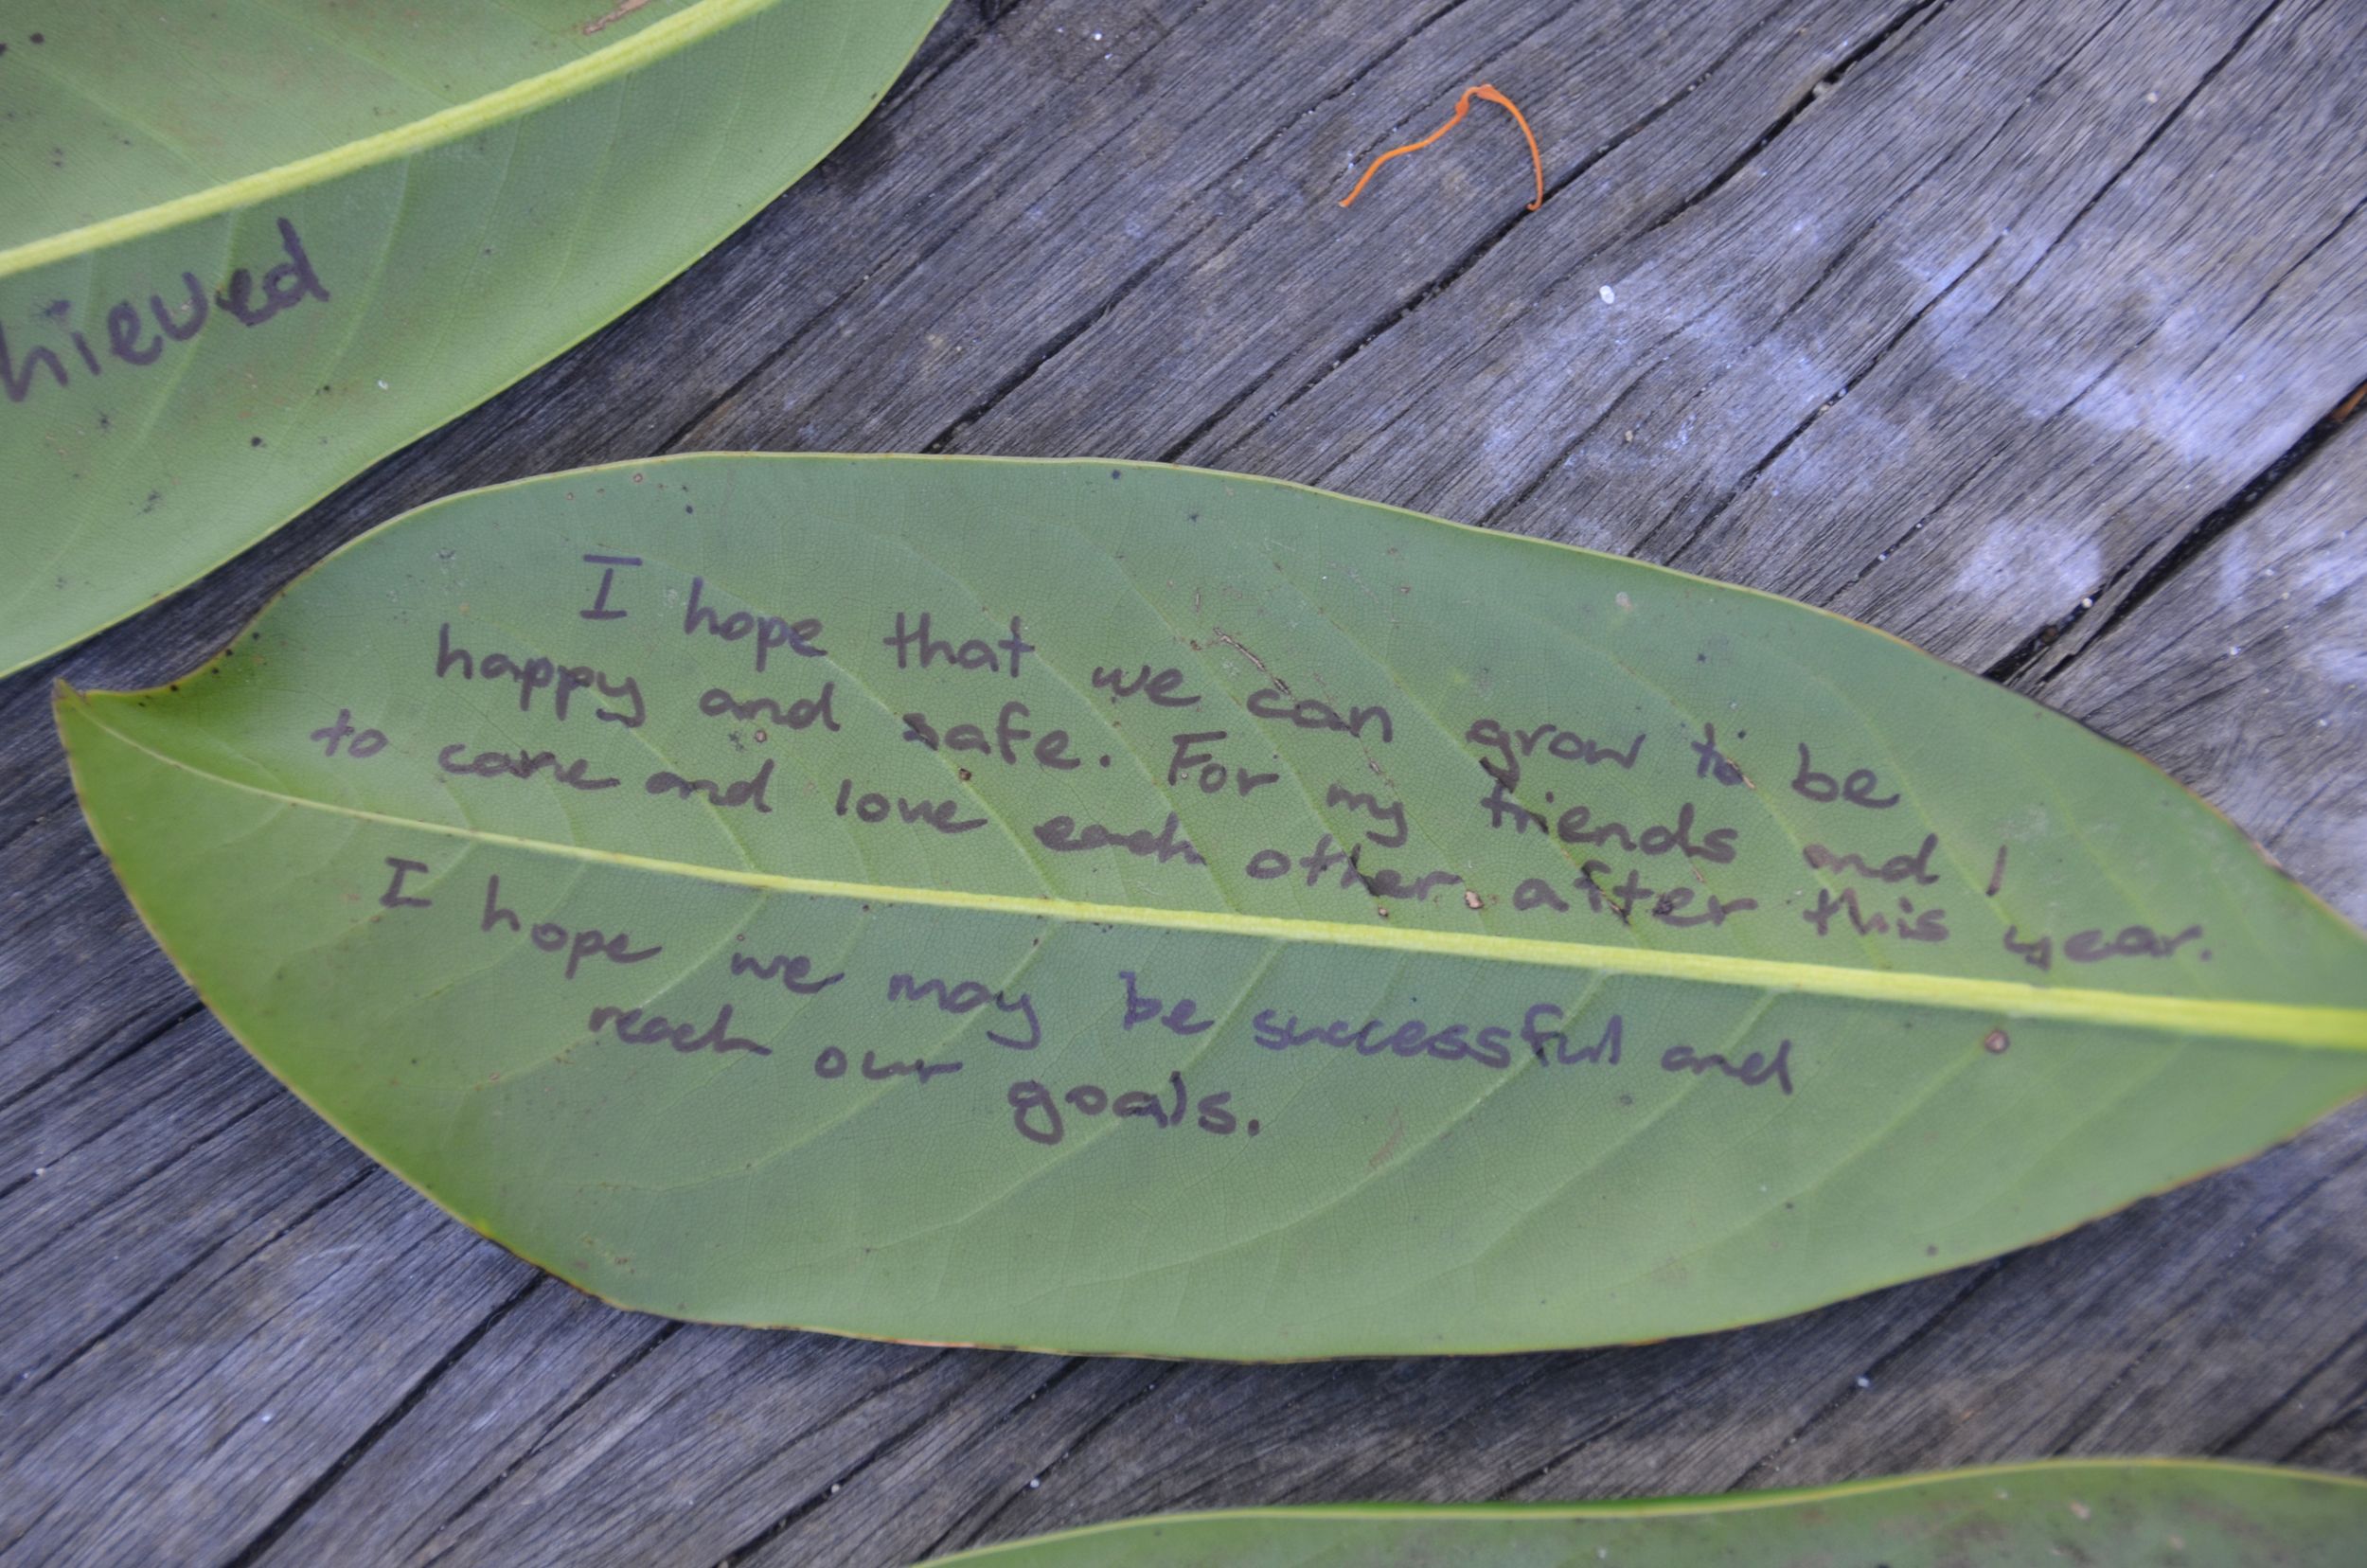 hieved
I hope that we can grow to be
happy and safe. For my friends and I
to care and love each other after this year.
I hope we may be successful and
reach our goals.